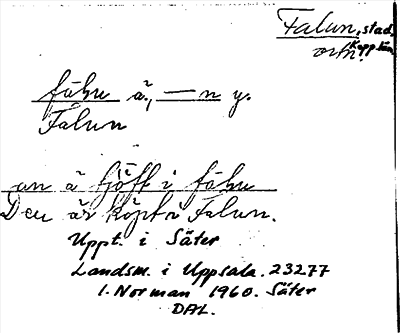 Falun, stad
Kopp. län
ortn.
fåhu ä, — n y.
Falun
an ä tjöft i fåhu
Den är köpt i Falun.
Uppt. i Säter
Landsm. i Uppsala. 23277
I. Norman 1960. Säter
DAL.